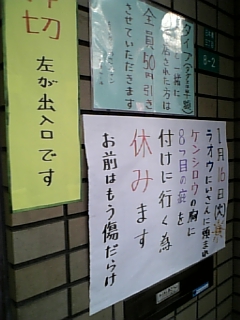 切
左が出入口です
タイプ(タグ)ご予約
全員50円引き
させていただきます
8-2
1月16日(火)
ラオウにいさんに頼まれ
ケンシロウの胸に
8つ目の疵を
付けに行く為
休みます
お前はもう傷だらけ